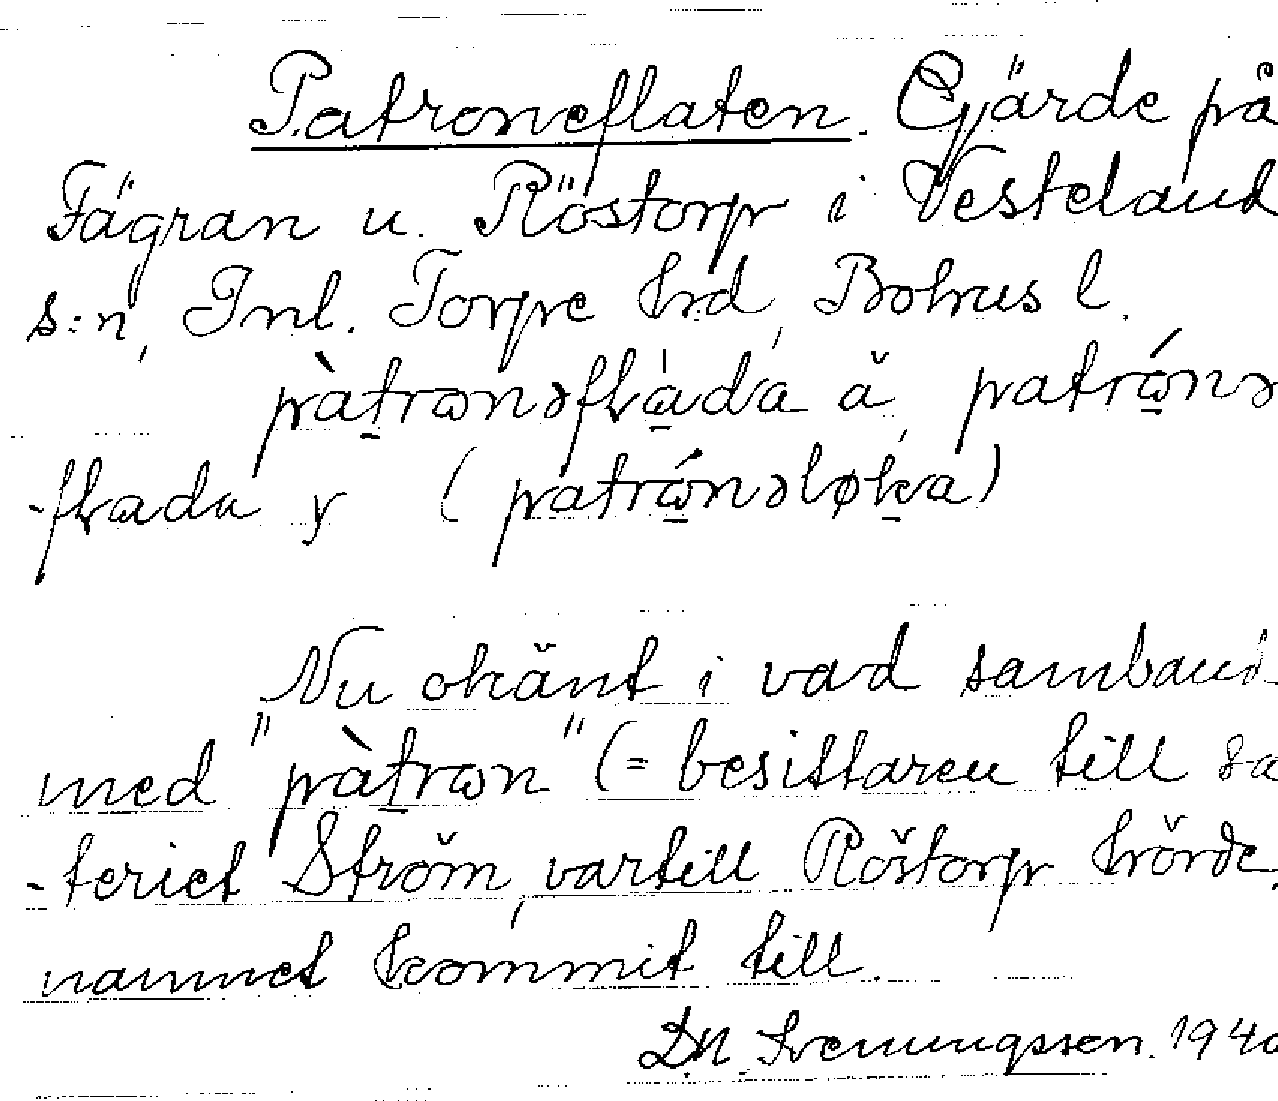 Patroneflaten. Gjärde på
Fägran u. Röstorp i Vesteland
s:n, Inl. Torpe hrd, Bohus l.
pàtrωnəflada å patrώnə
-flada y (patrώnəløka)
Nu okänt i vad samband
med "pàtrωn" (= besittaren till sä
-teriet Ström, vartill Röstorp hörde,
namnet kommit till.
D.N. Svenungsson. 1940